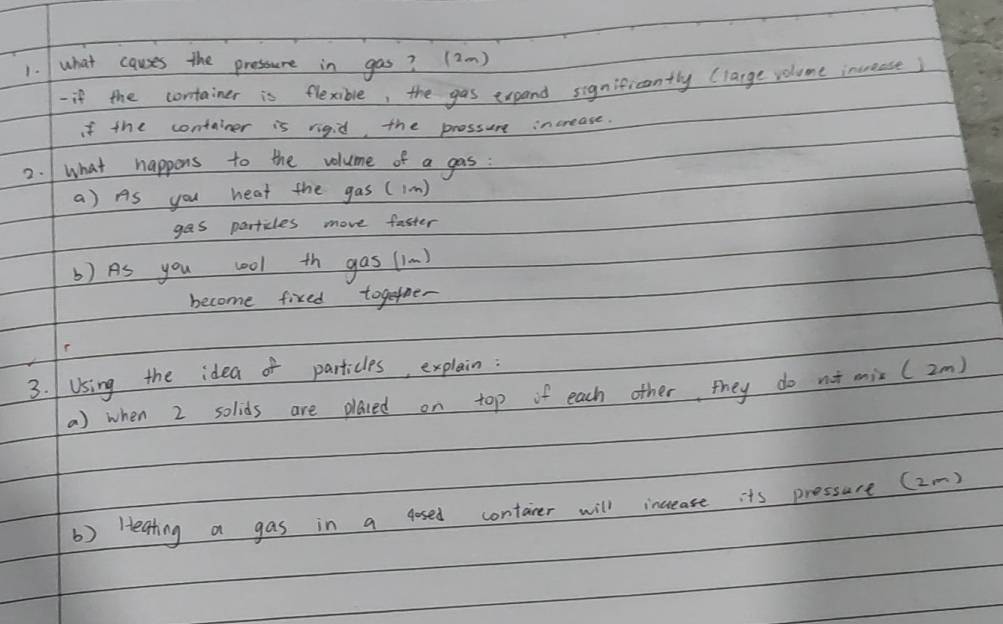 1. What causes the pressure in gas? (2m)
- if the container is flexible, the gas expand significantly (large volume increase)
if the container is rigid, the pressure increase.
2. What happens to the volume of a gas:
a) As you heat the gas (1m)
gas particles move faster
b) As you cool th gas (1m)
become fixed together
3. Using the idea of particles, explain:
a) When 2 solids are placed on top of each other, they do not mix (2m)
b) Heating a gas in a closed container will increase its pressure (2m)